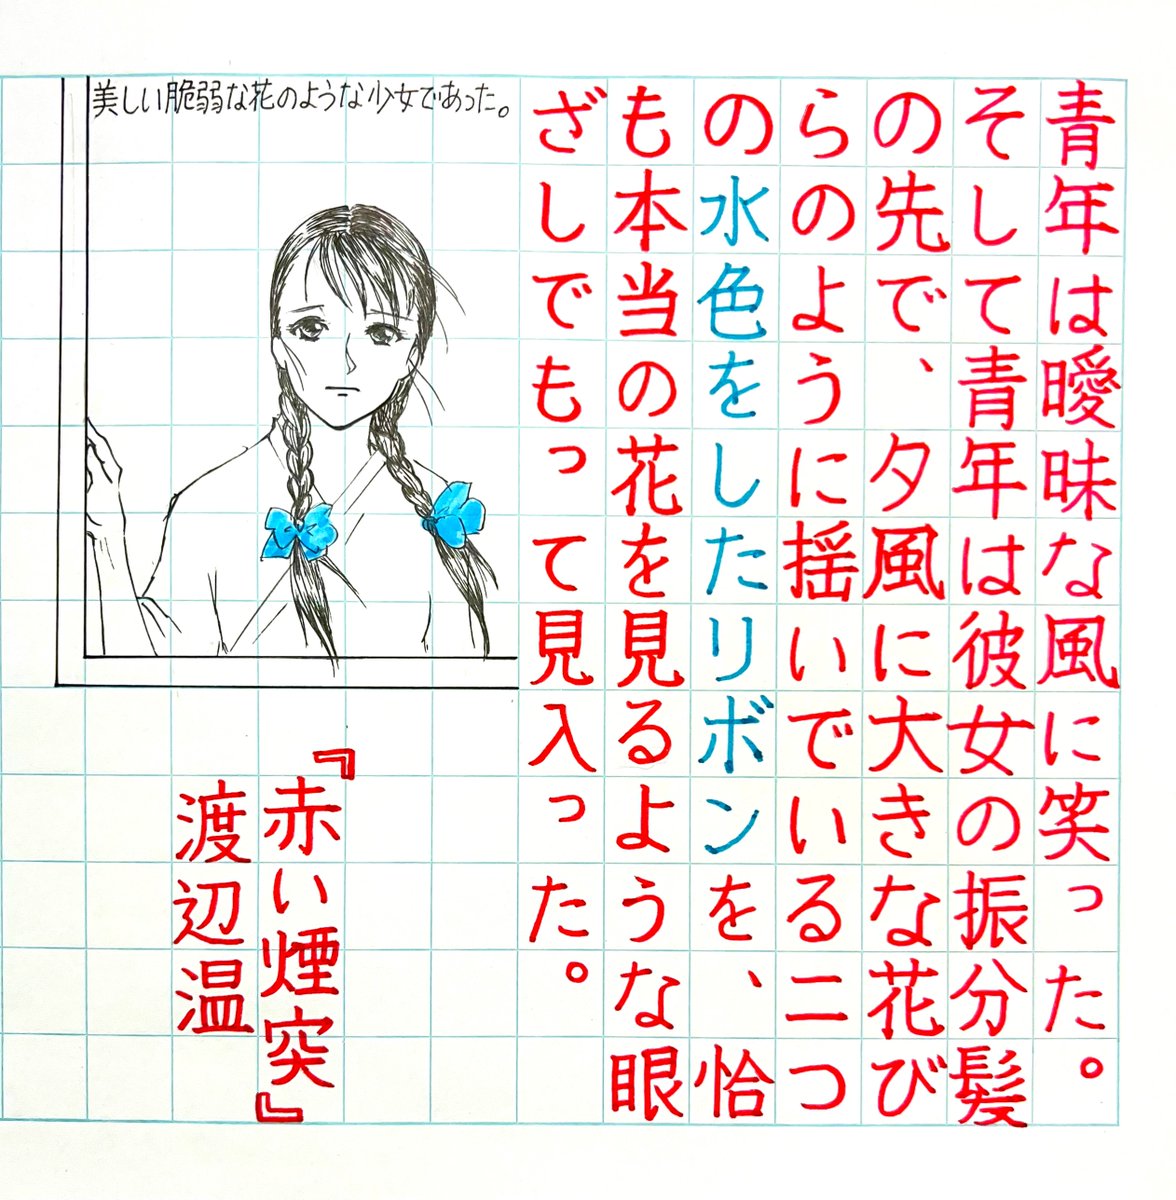 青年は曖昧な風に笑った。
そして青年は彼女の振分髪
の先で、夕風に大きな花び
らのように揺いでいる二つ
の水色をしたリボンを、恰
も本当の花を見るような眼
ざしでもって見入った。
美しい脆弱な花のような少女であった。
『赤い煙突』
渡辺温